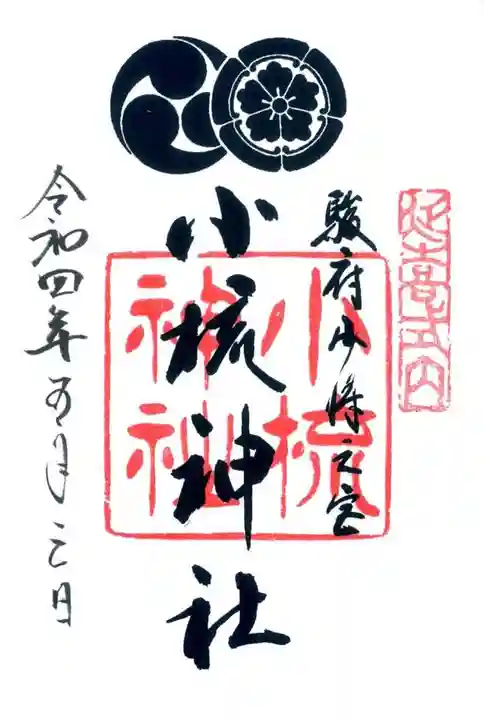 延喜式内
駿府少将之宮
小梳神社
小梳
神社
令和四年五月三日